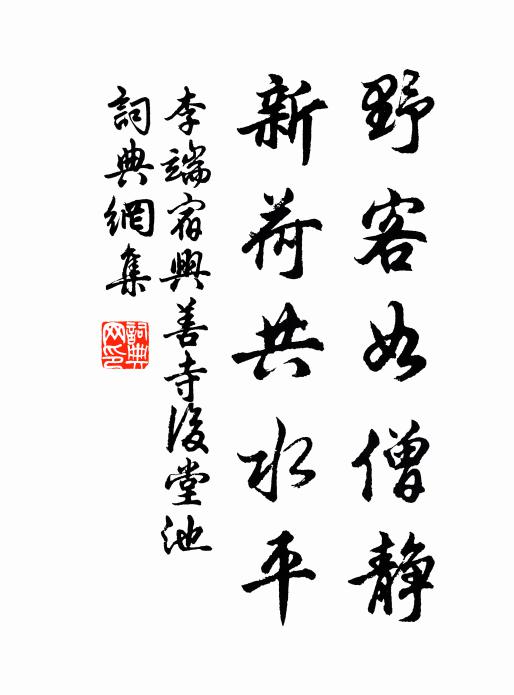 野客如僧静
新荷共水平
李端宿興善寺後堂池
詞典網集
詞典網印